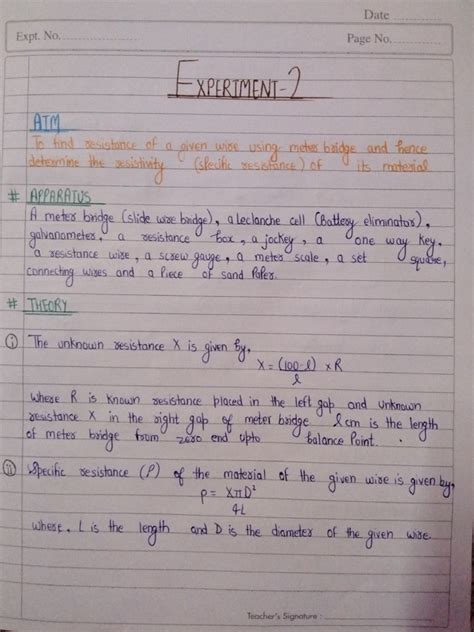 Date ............
Expt. No. ............
Page No. ............
EXPERIMENT-2
AIM
To find resistance of a given wire using meter bridge and hence
determine the resistivity (specific resistance) of its material
# APPARATUS
A meter bridge (slide wire bridge), a Leclanche cell (Battery eliminator),
galvanometer, a resistance box, a jockey, a one way key,
a resistance wire, a screw gauge, a meter scale, a set square,
connecting wires and a Piece of sand Paper.
# THEORY
(i) The unknown resistance X is given by,
X = (100-l) x R
l
where R is known resistance placed in the left gap and unknown
resistance X in the right gap of meter bridge. l cm is the length
of meter bridge from zero end upto balance Point.
(ii) Specific resistance (ρ) of the material of the given wire is given by,
ρ = XπD²
4L
where, L is the length and D is the diameter of the given wire.
Teacher's Signature : ............